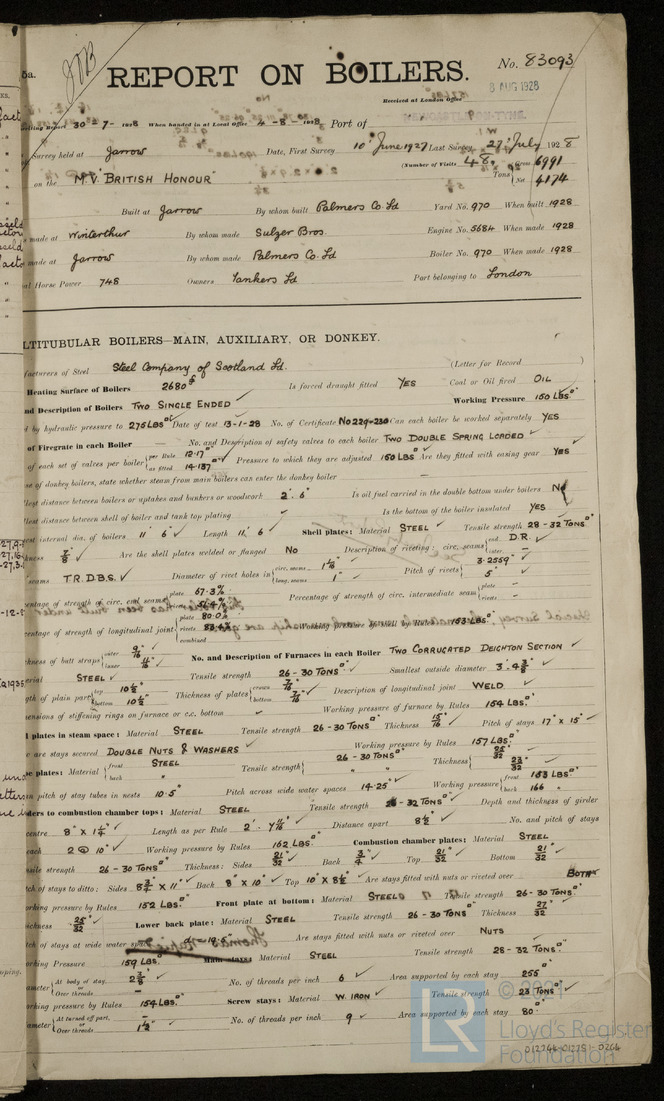 5a.
JTB
REPORT ON BOILERS.
No. 83093
8 AUG 1928
Received at London Office
NEWCASTLE-ON-TYNE.
Report 30-7-1928 When handed in at Local Office 4-8-1928 Port of
Survey held at Jarrow Date, First Survey 10th June 1927 Last Survey 27th July 1928
(Number of Visits 48) Gross 6991
on the M.V. "BRITISH HONOUR" Tons Net 4174
Built at Jarrow By whom built Palmers Co. Ld Yard No. 970 When built 1928
made at Winterthur By whom made Sulzer Bros. Engine No. 5684 When made 1928
made at Jarrow By whom made Palmers Co. Ld Boiler No. 970 When made 1928
Horse Power 748 Owners Tankers Ld Port belonging to London
LTITUBULAR BOILERS—MAIN, AUXILIARY, OR DONKEY.
facturers of Steel Steel Company of Scotland Ld. (Letter for Record )
Heating Surface of Boilers 2680 Is forced draught fitted YES Coal or Oil fired OIL
nd Description of Boilers TWO SINGLE ENDED Working Pressure 150 LBS
d by hydraulic pressure to 275 LBS Date of test 13-1-28 No. of Certificate No 229-230 Can each boiler be worked separately YES
of Firegrate in each Boiler — No. and Description of safety valves to each boiler TWO DOUBLE SPRING LOADED
of each set of valves per boiler per Rule 12.17 as fitted 14.137 Pressure to which they are adjusted 150 LBS Are they fitted with easing gear YES
se of donkey boilers, state whether steam from main boilers can enter the donkey boiler
llest distance between boilers or uptakes and bunkers or woodwork 2'. 6" Is oil fuel carried in the double bottom under boilers No
llest distance between shell of boiler and tank top plating Is the bottom of the boiler insulated YES
est internal dia. of boilers 11' 6" Length 11'. 6" Shell plates: Material STEEL Tensile strength 28-32 TONS
kness 7/8 Are the shell plates welded or flanged NO Description of riveting: circ. seams end D.R. inter. —
seams T.R.D.B.S. Diameter of rivet holes in circ. seams 1 1/8 long. seams 1" Pitch of rivets 3.2559 5"
centage of strength of circ. end seams plate 67.3% Percentage of strength of circ. intermediate seam plate — rivets —
centage of strength of longitudinal joint plate 80.0% rivets combined Working pressure of shell by Rules 153 LBS
kness of butt straps outer 9/16 inner 11/16 No. and Description of Furnaces in each Boiler TWO CORRUGATED DEIGHTON SECTION
erial STEEL Tensile strength 26-30 TONS Smallest outside diameter 3'-4 3/8
gth of plain part top 10 1/2 bottom 10 1/2 Thickness of plates crown 7/16 bottom 7/16 Description of longitudinal joint WELD
ensions of stiffening rings on furnace or c.c. bottom Working pressure of furnace by Rules 154 LBS.
l plates in steam space: Material STEEL Tensile strength 26-30 TONS Thickness 15/16 Pitch of stays 17" x 15"
are stays secured DOUBLE NUTS & WASHERS Working pressure by Rules 157 LBS.
e plates: Material front STEEL back " Tensile strength 26-30 TONS " " Thickness 25/32 23/32
n pitch of stay tubes in nests 10.5" Pitch across wide water spaces 14.25" Working pressure front 153 LBS back 166 "
ders to combustion chamber tops: Material STEEL Tensile strength 28-32 TONS Depth and thickness of girder
entre 8" x 1 1/4" Length as per Rule 2'. 4 11/16 Distance apart 8 1/2 No. and pitch of stays
each 2 @ 10" Working pressure by Rules 162 LBS. Combustion chamber plates: Material STEEL
sile strength 26-30 TONS Thickness: Sides 21/32 Back 3/4 Top 21/32 Bottom 21/32
tch of stays to ditto: Sides 8 3/4 x 11" Back 8" x 10" Top 10" x 8 1/2 Are stays fitted with nuts or riveted over BOTH
orking pressure by Rules 152 LBS. Front plate at bottom: Material STEEL Tensile strength 26-30 TONS
ickness 25/32 Lower back plate: Material STEEL Tensile strength 26-30 TONS Thickness 27/32
tch of stays at wide water space Are stays fitted with nuts or riveted over NUTS
orking Pressure 159 LBS. Main stays: Material STEEL Tensile strength 28-32 TONS.
ameter At body of stay, 2 3/8 Over threads — No. of threads per inch 6 Area supported by each stay 255
orking pressure by Rules 154 LBS. Screw stays: Material W. IRON Tensile strength 23 TONS
ameter At turned off part, — Over threads 1 1/2 No. of threads per inch 9 Area supported by each stay 80
© 2021
Lloyd's Register
Foundation
012746-012751-0264